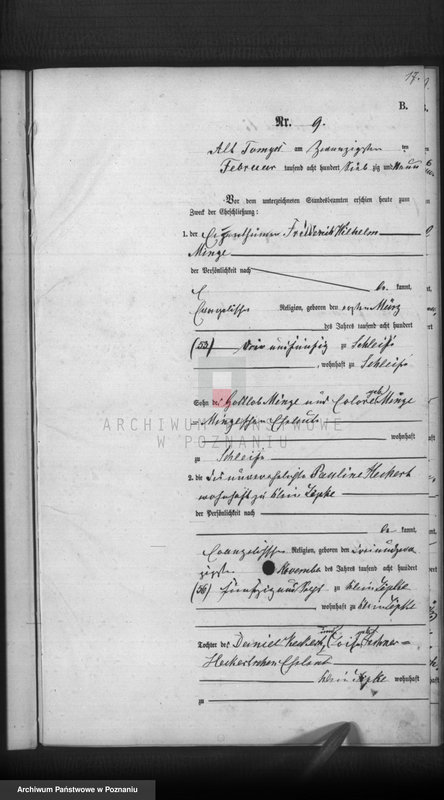 17.
B.
Nr. 9.
Alt Tomysl am Zwanzigsten ten
Februar tausend acht hundert Sieb zig und Neun
Vor dem unterzeichneten Standesbeamten erschien heute zum
Zweck der Eheschließung:
1. der Eigenthümer Friedrich Wilhelm
Minge
der Persönlichkeit nach
be kannt,
Evangelischer Religion, geboren den ersten März
des Jahres tausend acht hundert
(53) drei und fünfzig zu Schleife
, wohnhaft zu Schleife
Sohn der Gottlob Minge und geb. Minge
Mingeschen Eheleute
wohnhaft
zu Schleife
2. die unverehelichte Pauline Heckert
wohnhaft zu Klein Lipke
der Persönlichkeit nach
be kannt,
Evangelischer Religion, geboren den Drei und zwan
zigsten November des Jahres tausend acht hundert
(56) fünfzig und Sechs zu Klein Lipke
, wohnhaft zu Klein Lipke
Tochter des Daniel Heckert und geb.
Heckertschen Eheleute
Klein Lipke wohnhaft
zu
ARCHIWUM PAŃSTWOWE
W POZNANIU
Archiwum Państwowe w Poznaniu